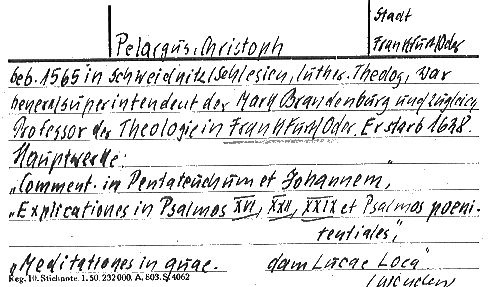 Stadt
Pelargus, Christoph
Frankfurt/Oder
geb. 1565 in Schweidnitz/Schlesien, luther. Theolog, war
Generalsuperintendent der Mark Brandenburg und zugleich
Professor der Theologie in Frankfurt/Oder. Er starb 1628.
Hauptwerke:
„Comment. in Pentateuchum et Johannem",
„Explicationes in Psalmos XVI, XXII, XXIX et Psalmos poeni-
tentiales",
„Meditationes in quae- dam Lucae Loca"
Reg. 10. Stichnote. 1. 50. 232 000. A. 803. S/4062